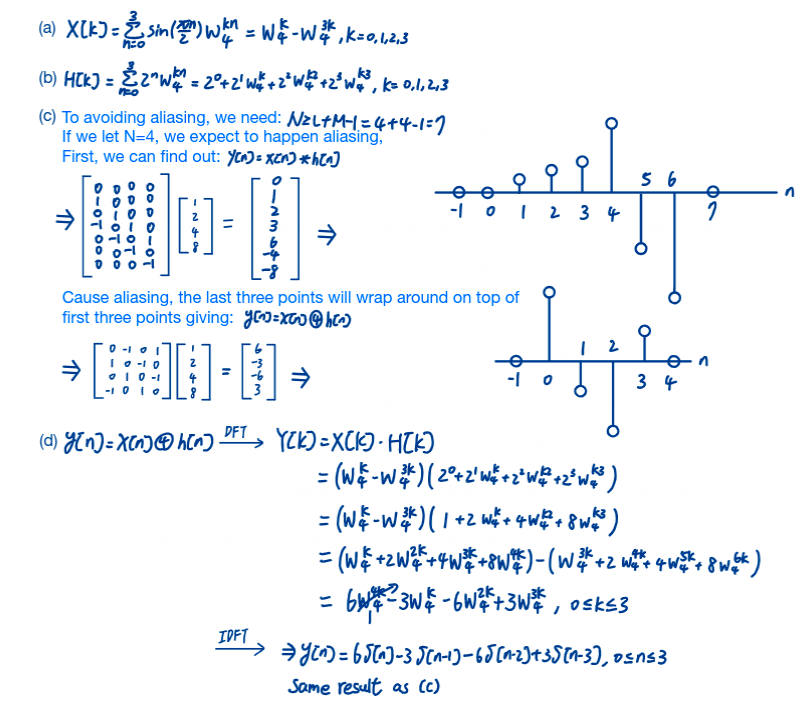 (a) X[k] = Σ_{n=0}^{3} sin(πn/2) W_4^{kn} = W_4^k - W_4^{3k}, k=0,1,2,3
(b) H[k] = Σ_{n=0}^{3} 2^n W_4^{kn} = 2^0+2^1 W_4^k+2^2 W_4^{k2}+2^3 W_4^{k3}, k= 0,1,2,3
(c) To avoiding aliasing, we need: N≥L+M-1=4+4-1=7
If we let N=4, we expect to happen aliasing,
First, we can find out: y[n]=x[n]*h[n]
5 6
n
-1 0 1 2 3 4 7
⇒ [0 0 0 0; 1 0 0 0; 0 1 0 0; -1 0 1 0; 0 -1 0 1; 0 0 -1 0; 0 0 0 -1] [1; 2; 4; 8] = [0; 1; 2; 3; 6; -4; -8] ⇒
Cause aliasing, the last three points will wrap around on top of
first three points giving: y[n]=x[n]④h[n]
1 2
n
-1 0 3 4
⇒ [0 -1 0 1; 1 0 -1 0; 0 1 0 -1; -1 0 1 0] [1; 2; 4; 8] = [6; -3; -6; 3] ⇒
(d) y[n]=x[n]④h[n] DFT→ Y[k]=X[k]·H[k]
= (W_4^k - W_4^{3k})(2^0+2^1 W_4^k+2^2 W_4^{k2}+2^3 W_4^{k3})
= (W_4^k - W_4^{3k})(1+2W_4^k+4W_4^{k2}+8W_4^{k3})
= (W_4^k+2W_4^{2k}+4W_4^{3k}+8W_4^{4k})-(W_4^{3k}+2W_4^{4k}+4W_4^{5k}+8W_4^{6k})
= 6W_4^{4k}-3W_4^k-6W_4^{2k}+3W_4^{3k}, 0≤k≤3
1
IDFT→ ⇒ y[n]=6δ[n]-3δ[n-1]-6δ[n-2]+3δ[n-3], 0≤n≤3
Same result as (c)